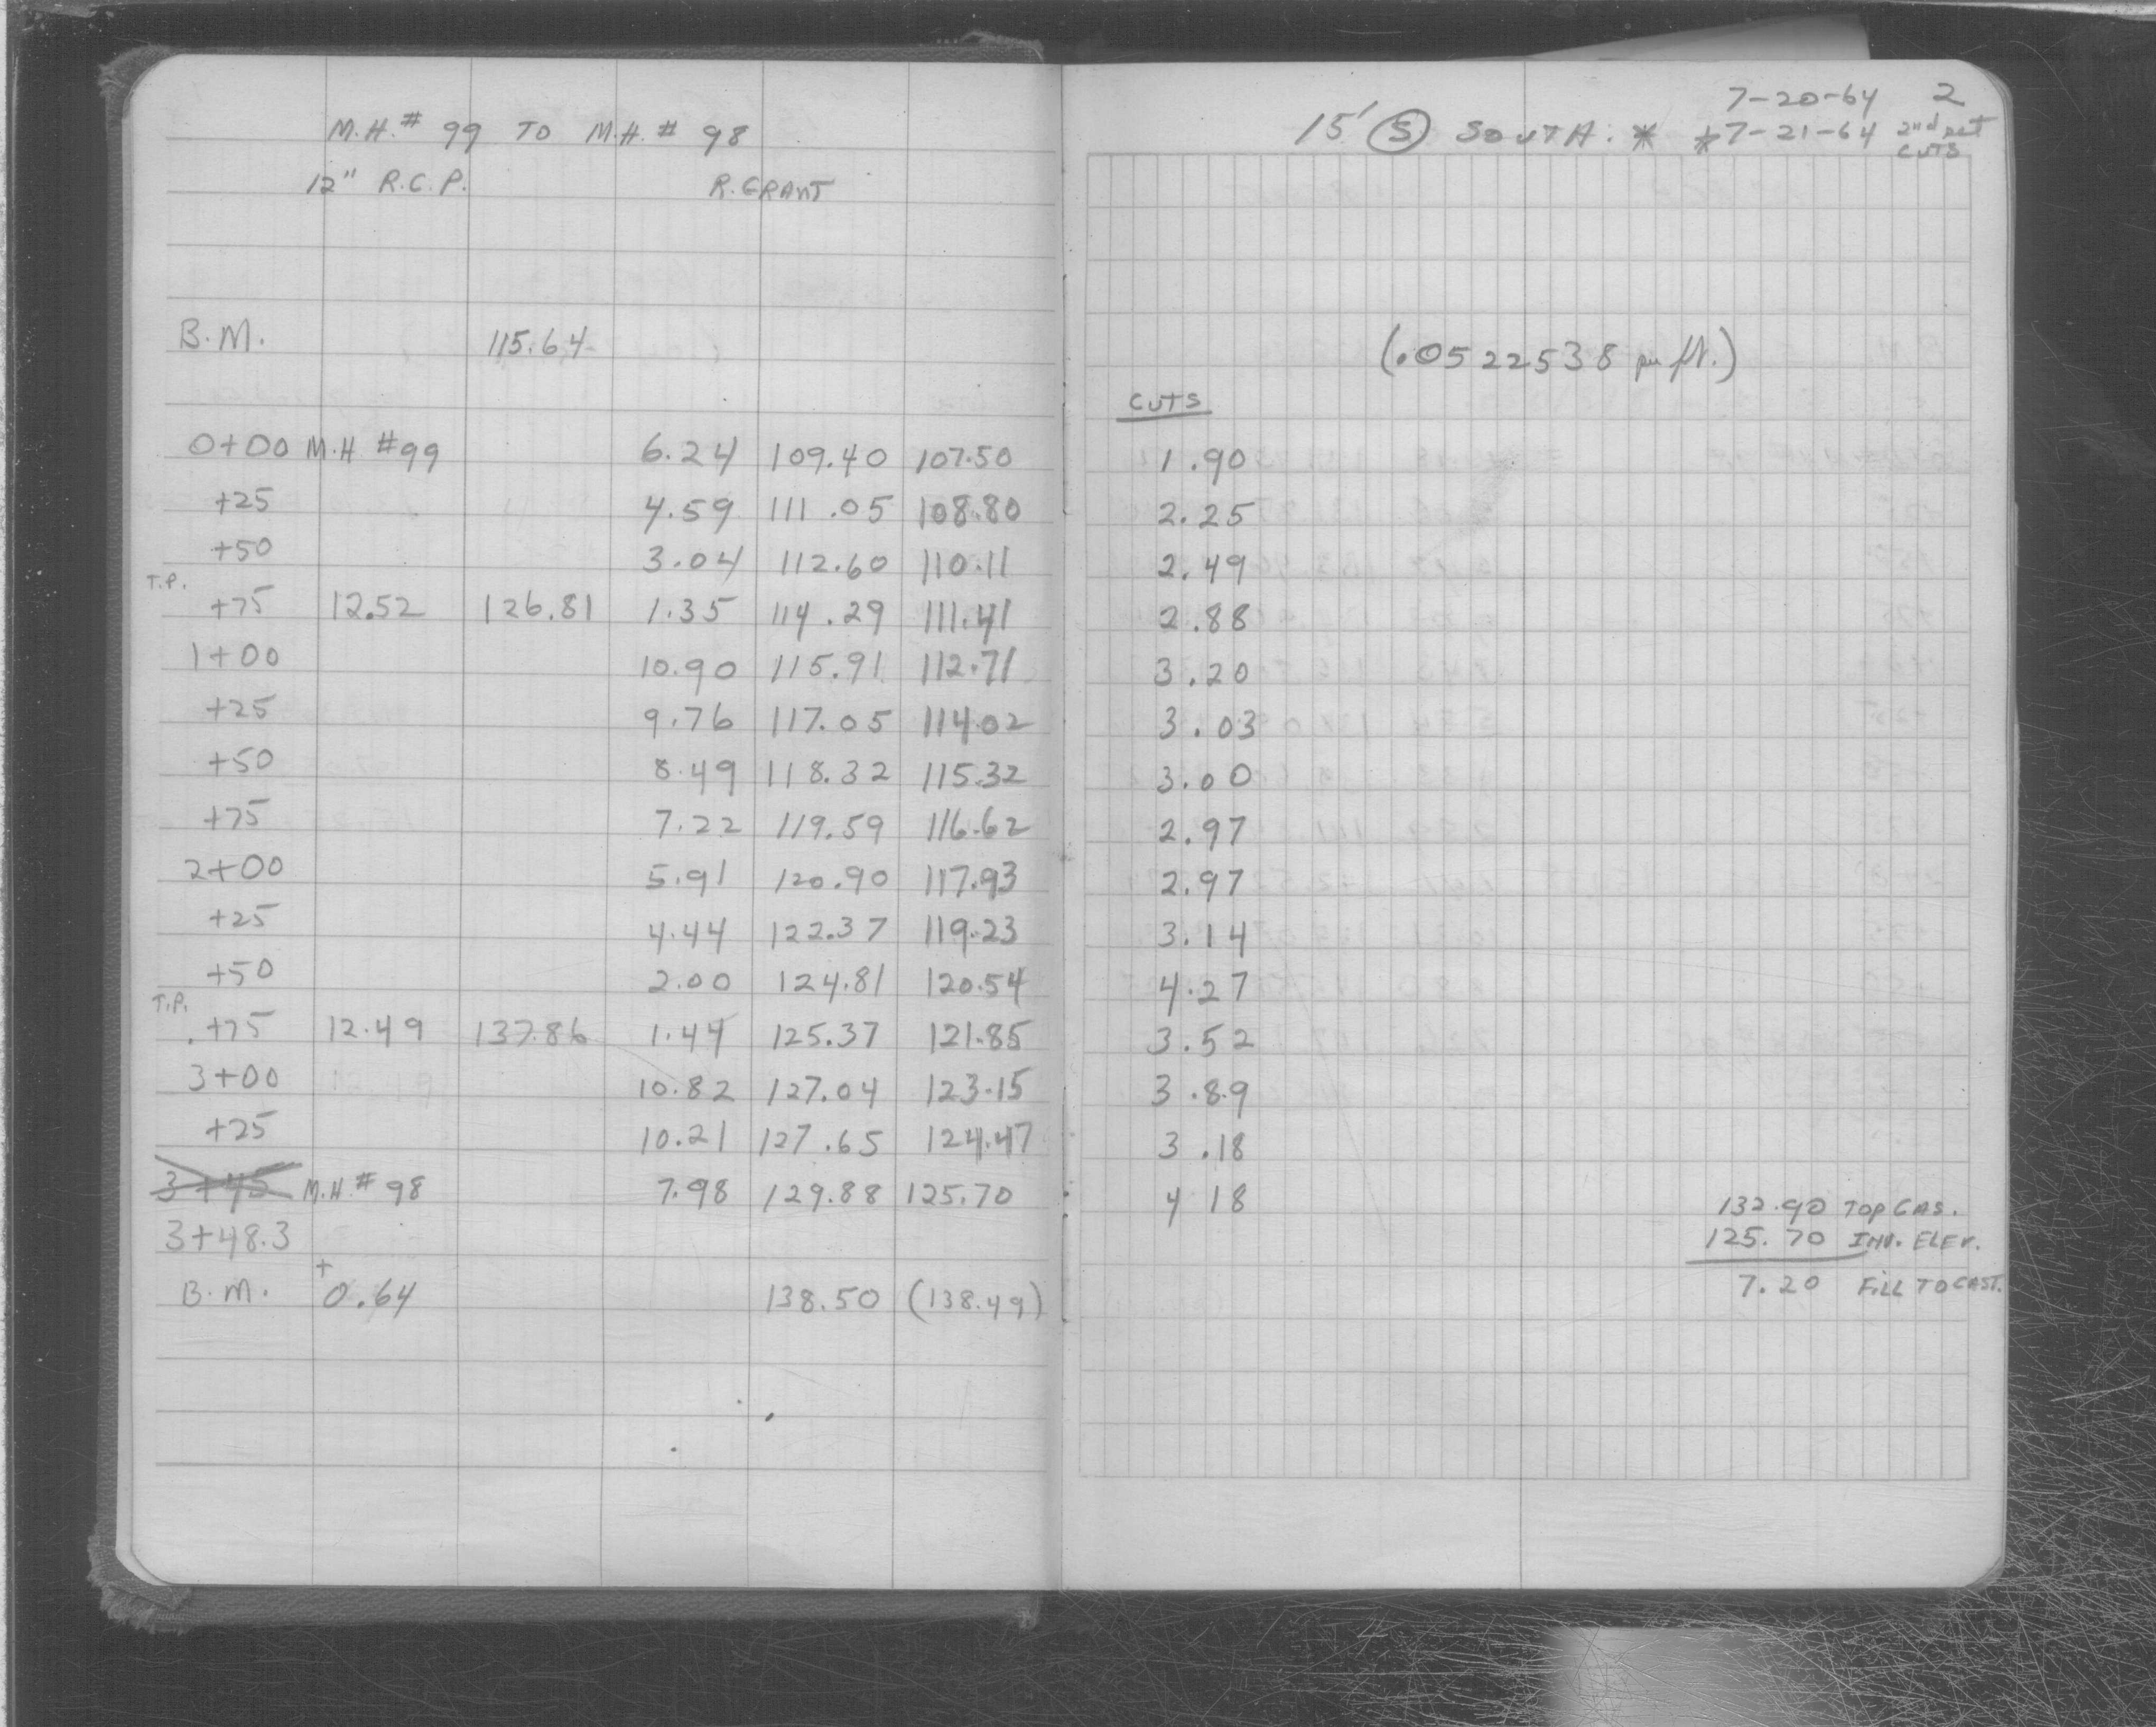 M.H.# 99 TO M.H.# 98
12" R.C.P. R. GRANT
B.M. 115.64
0+00 M.H #99 6.24 109.40 107.50
+25 4.59 111.05 108.80
+50 3.04 112.60 110.11
T.P.
+75 12.52 126.81 1.35 114.29 111.41
1+00 10.90 115.91 112.71
+25 9.76 117.05 114.02
+50 8.49 118.32 115.32
+75 7.22 119.59 116.62
2+00 5.91 120.90 117.93
+25 4.44 122.37 119.23
+50 2.00 124.81 120.54
T.P.
+75 12.49 137.86 1.44 125.37 121.85
3+00 10.82 127.04 123.15
+25 10.21 127.65 124.47
3+45 M.H.# 98 7.98 129.88 125.70
3+48.3
B.M. +0.64 138.50 (138.49)
7-20-64 2
15' S SOUTH: * *7-21-64 2nd set
CUTS
(.0522538 per ft.)
CUTS
1.90
2.25
2.49
2.88
3.20
3.03
3.00
2.97
2.97
3.14
4.27
3.52
3.89
3.18
4 18
132.90 TOP CAS.
125.70 INV. ELEV.
7.20 FILL TO CAST.